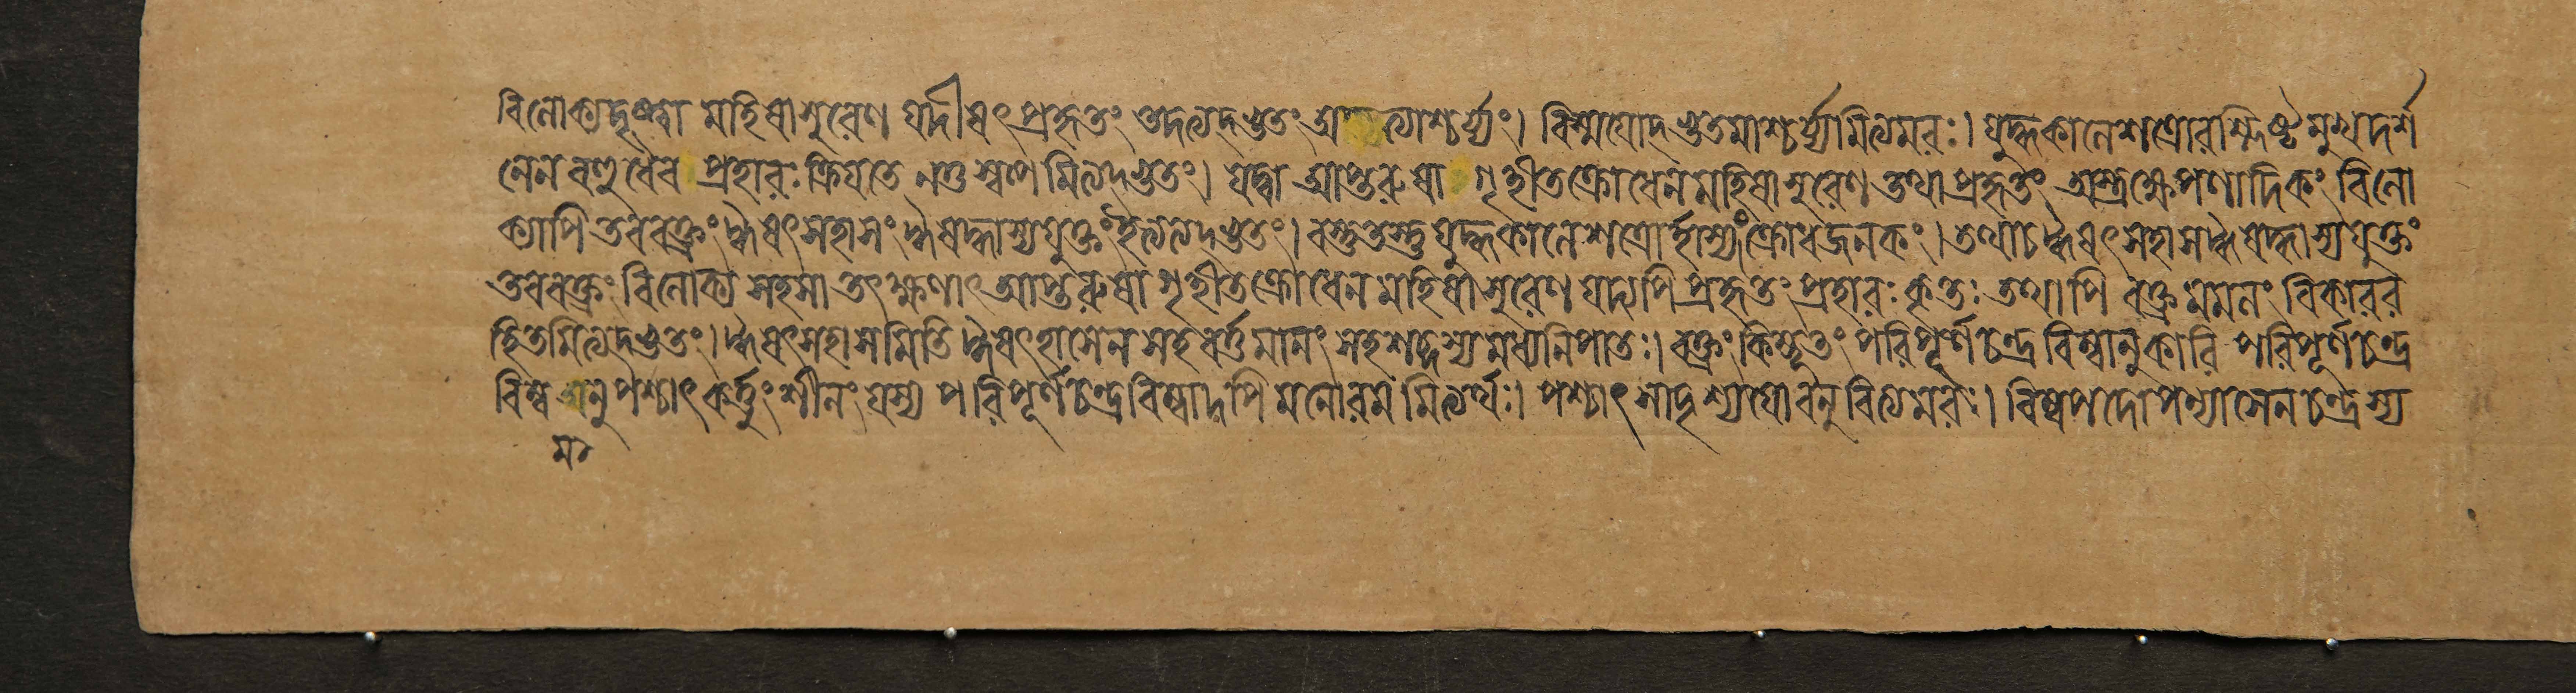 বিলোক্যদৃষ্ট্বা মহিষাসুরেণ যদীষৎ প্রহৃতং তদত্যদ্ভুতং অত্যাশ্চর্য্যং। বিস্ময়োদ্ভুতমাশ্চর্য্যমিত্যমরঃ। যুদ্ধকালেশত্রোরক্লিষ্টমুখদর্শ
নেন বন্ধুবৈব প্রহারঃ ক্রিয়তে নতু স্বল্প মিত্যদ্ভুতং। যদ্বা আপ্তরুষা গৃহীতক্রোধেনমহিষাসুরেণ তথা প্রহৃতং অস্ত্রক্ষেপণাদিকং বিলো
ক্যাপি তববক্ত্রং ঈষৎসহাসং ঈষদ্ধাস্যযুক্তং ইত্যত্যদ্ভুতং। বস্তুতস্তু যুদ্ধকালেশত্রোর্হাস্যং ক্রোধজনকং। তথাচ ঈষৎসহাসঈষদ্ধাস্যযুক্তং
তববক্ত্রং বিলোক্য সহসা তৎক্ষণাৎ আপ্তরুষা গৃহীতক্রোধেন মহিষাসুরেণ যদ্যপি প্রহৃতং প্রহারঃ কৃতঃ তথাপি বক্ত্রমমলং বিকারর
হিতমিত্যদ্ভুতং। ঈষৎসহাসমিতি ঈষৎহাসেন সহবর্ত্তমানং সহশব্দস্যমধ্যনিপাতঃ। বক্ত্রং কিম্ভূতং পরিপূর্ণচন্দ্রবিম্বানুকারি পরিপূর্ণচন্দ্র
বিম্ব অনুপশ্চাৎ কর্ত্তুং শীলং যস্য পরিপূর্ণচন্দ্রবিম্বাদপি মনোরমমিত্যর্থঃ। পশ্চাৎ সাদৃশ্যয়োরনু রিত্যমরঃ। বিম্বপদোপন্যাসেন চন্দ্রস্য
ম২